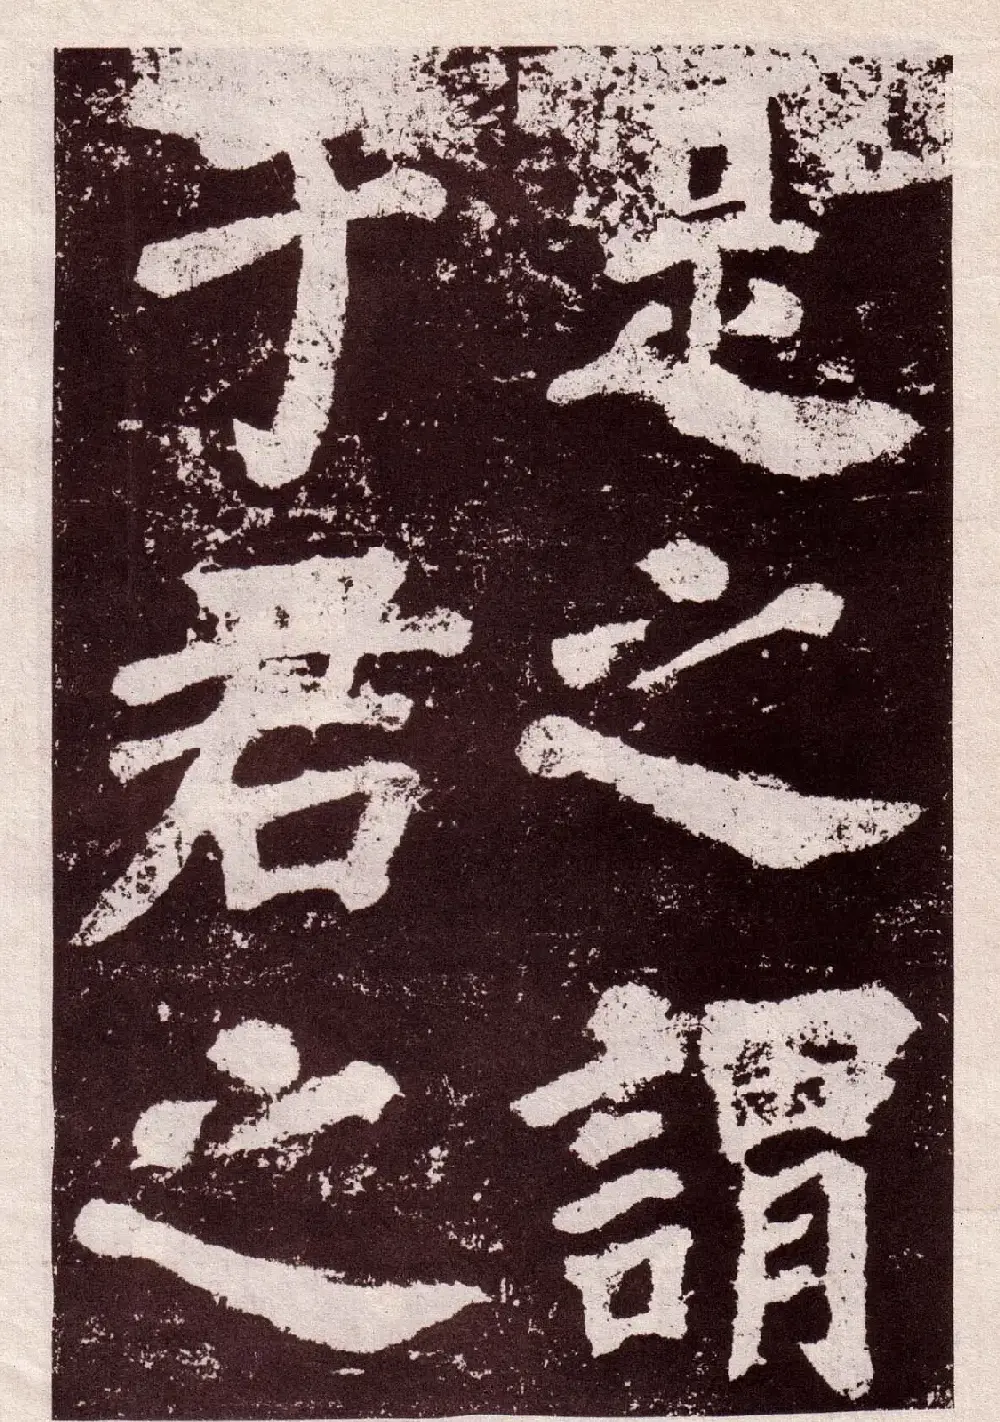 是之謂
乎君之